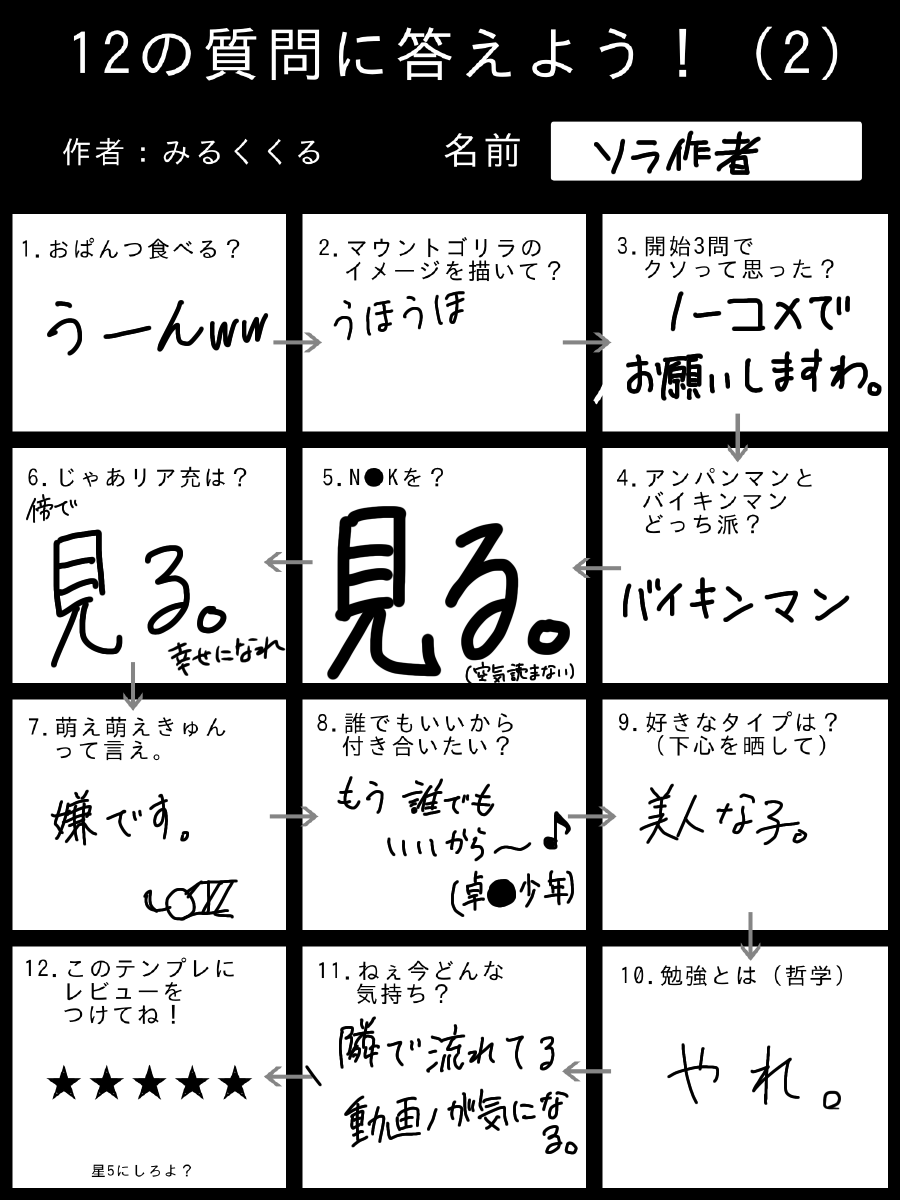 12の質問に答えよう！（2）
作者：みるくくる
名前
ソラ作者
1.おぱんつ食べる？
うーんww
2.マウントゴリラの
イメージを描いて？
うほうほ
3.開始3問で
クソって思った？
ノーコメで
お願いしますわ。
4.アンパンマンと
バイキンマン
どっち派？
バイキンマン
5.N●Kを？
見る。
(空気読まない)
6.じゃあリア充は？
傍で
見る。
幸せになれ
7.萌え萌えきゅん
って言え。
嫌です。
8.誰でもいいから
付き合いたい？
もう誰でも
いいから〜♪
(卓●少年)
9.好きなタイプは？
（下心を晒して）
美人な子。
10.勉強とは（哲学）
やれ。
11.ねぇ今どんな
気持ち？
隣で流れてる
動画が気にな
る。
12.このテンプレに
レビューを
つけてね！
★★★★★
星5にしろよ？